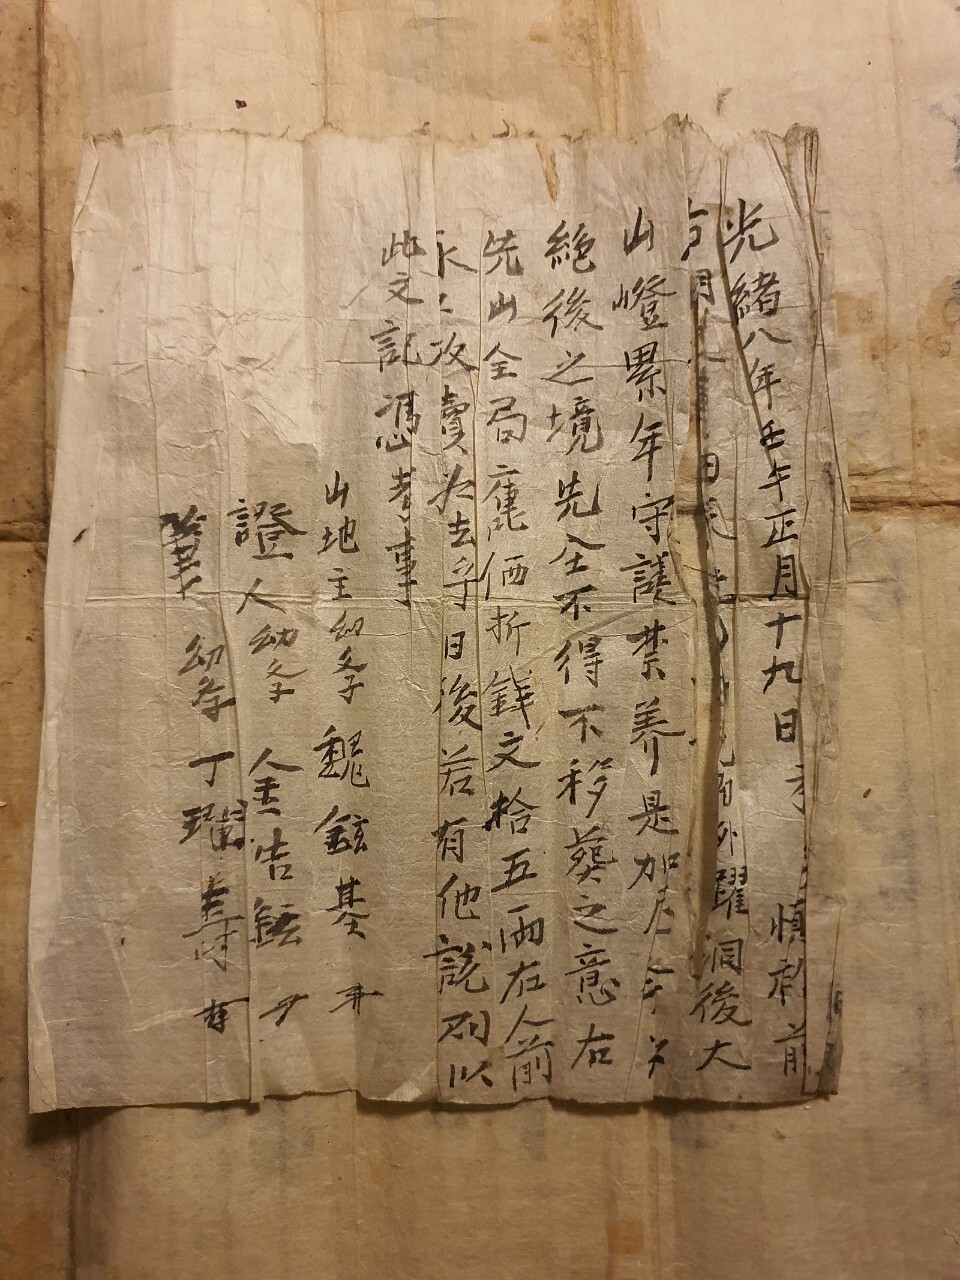 光緖八年壬午正月十九日 愼 前
右明 段 外躍洞後大
山嶝累年守護禁養是加尼
絶後之境先全不得不移葬之意右
先山全局庫価折錢文拾五兩右人前
永〻放賣爲去乎日後若有他說則以
此文記憑考事
山地主幼学 魏鉉基
證人幼学 金浩鉉
筆 幼学 丁瓓壽